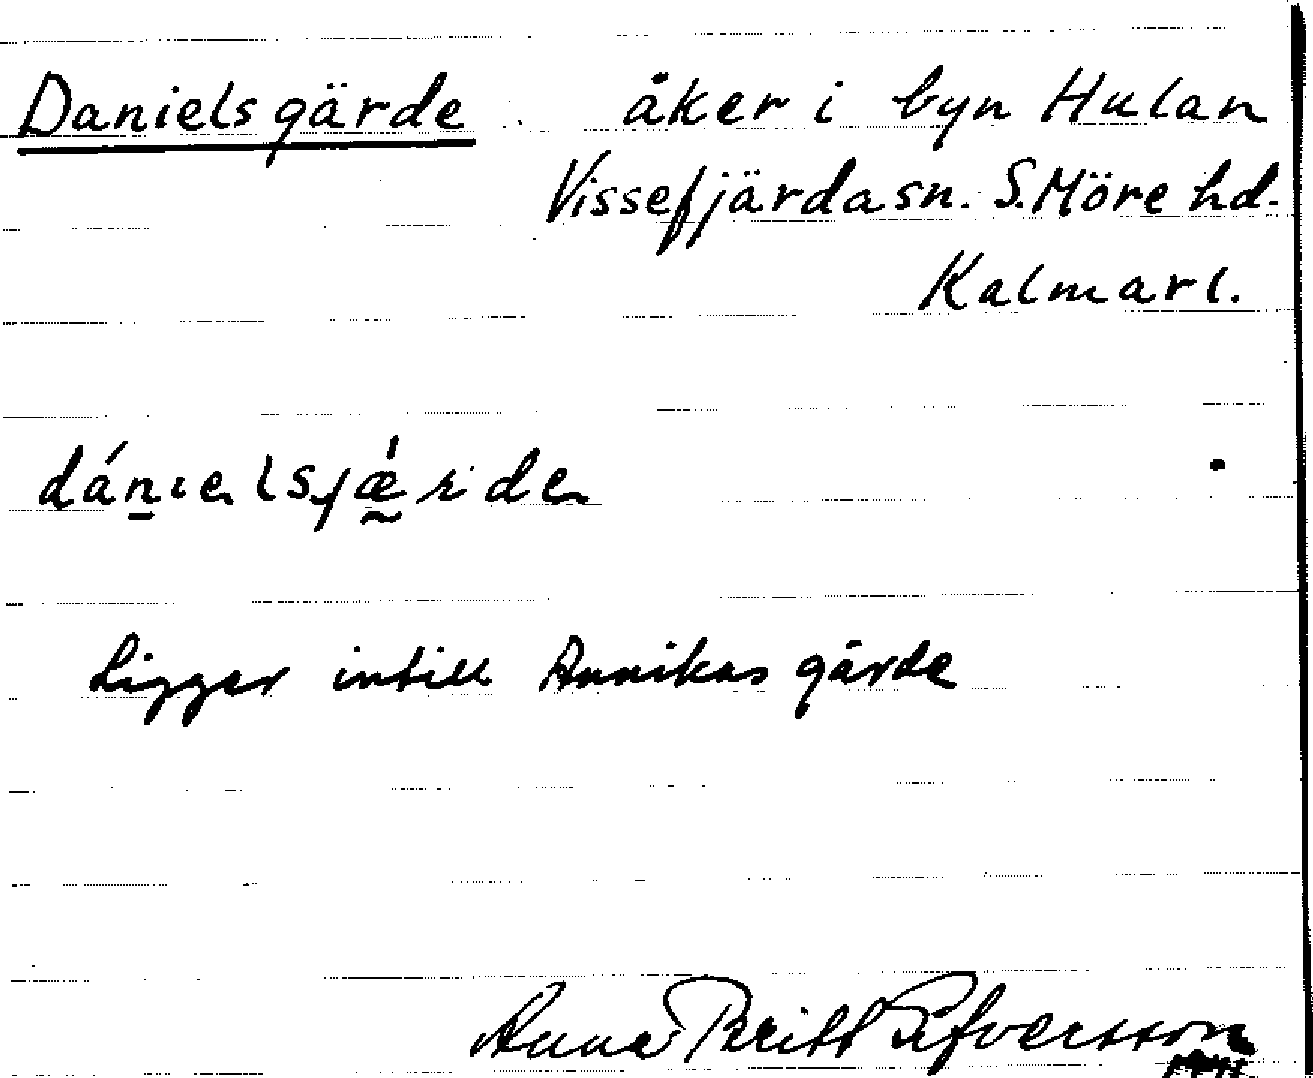 Danielsgärde åker i byn Hulan
Vissefjärda sn. S. Möre hd.
Kalmar l.
dánıelsjǽrden
Ligger intill Annikas gärde
Anna Britt Silfversson